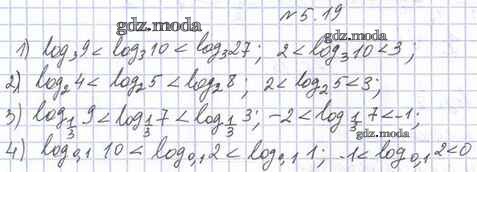 №5.19
gdz.moda
1) log₃9 < log₃10 < log₃27; 2 < log₃10 < 3;
gdz.moda
2) log₂4 < log₂5 < log₂8; 2 < log₂5 < 3;
3) log_{1/3} 9 < log_{1/3} 7 < log_{1/3} 3; -2 < log_{1/3} 7 < -1;
gdz.moda
4) log₀,₁ 10 < log₀,₁ 2 < log₀,₁ 1; -1 < log₀,₁ 2 < 0
gdz.moda